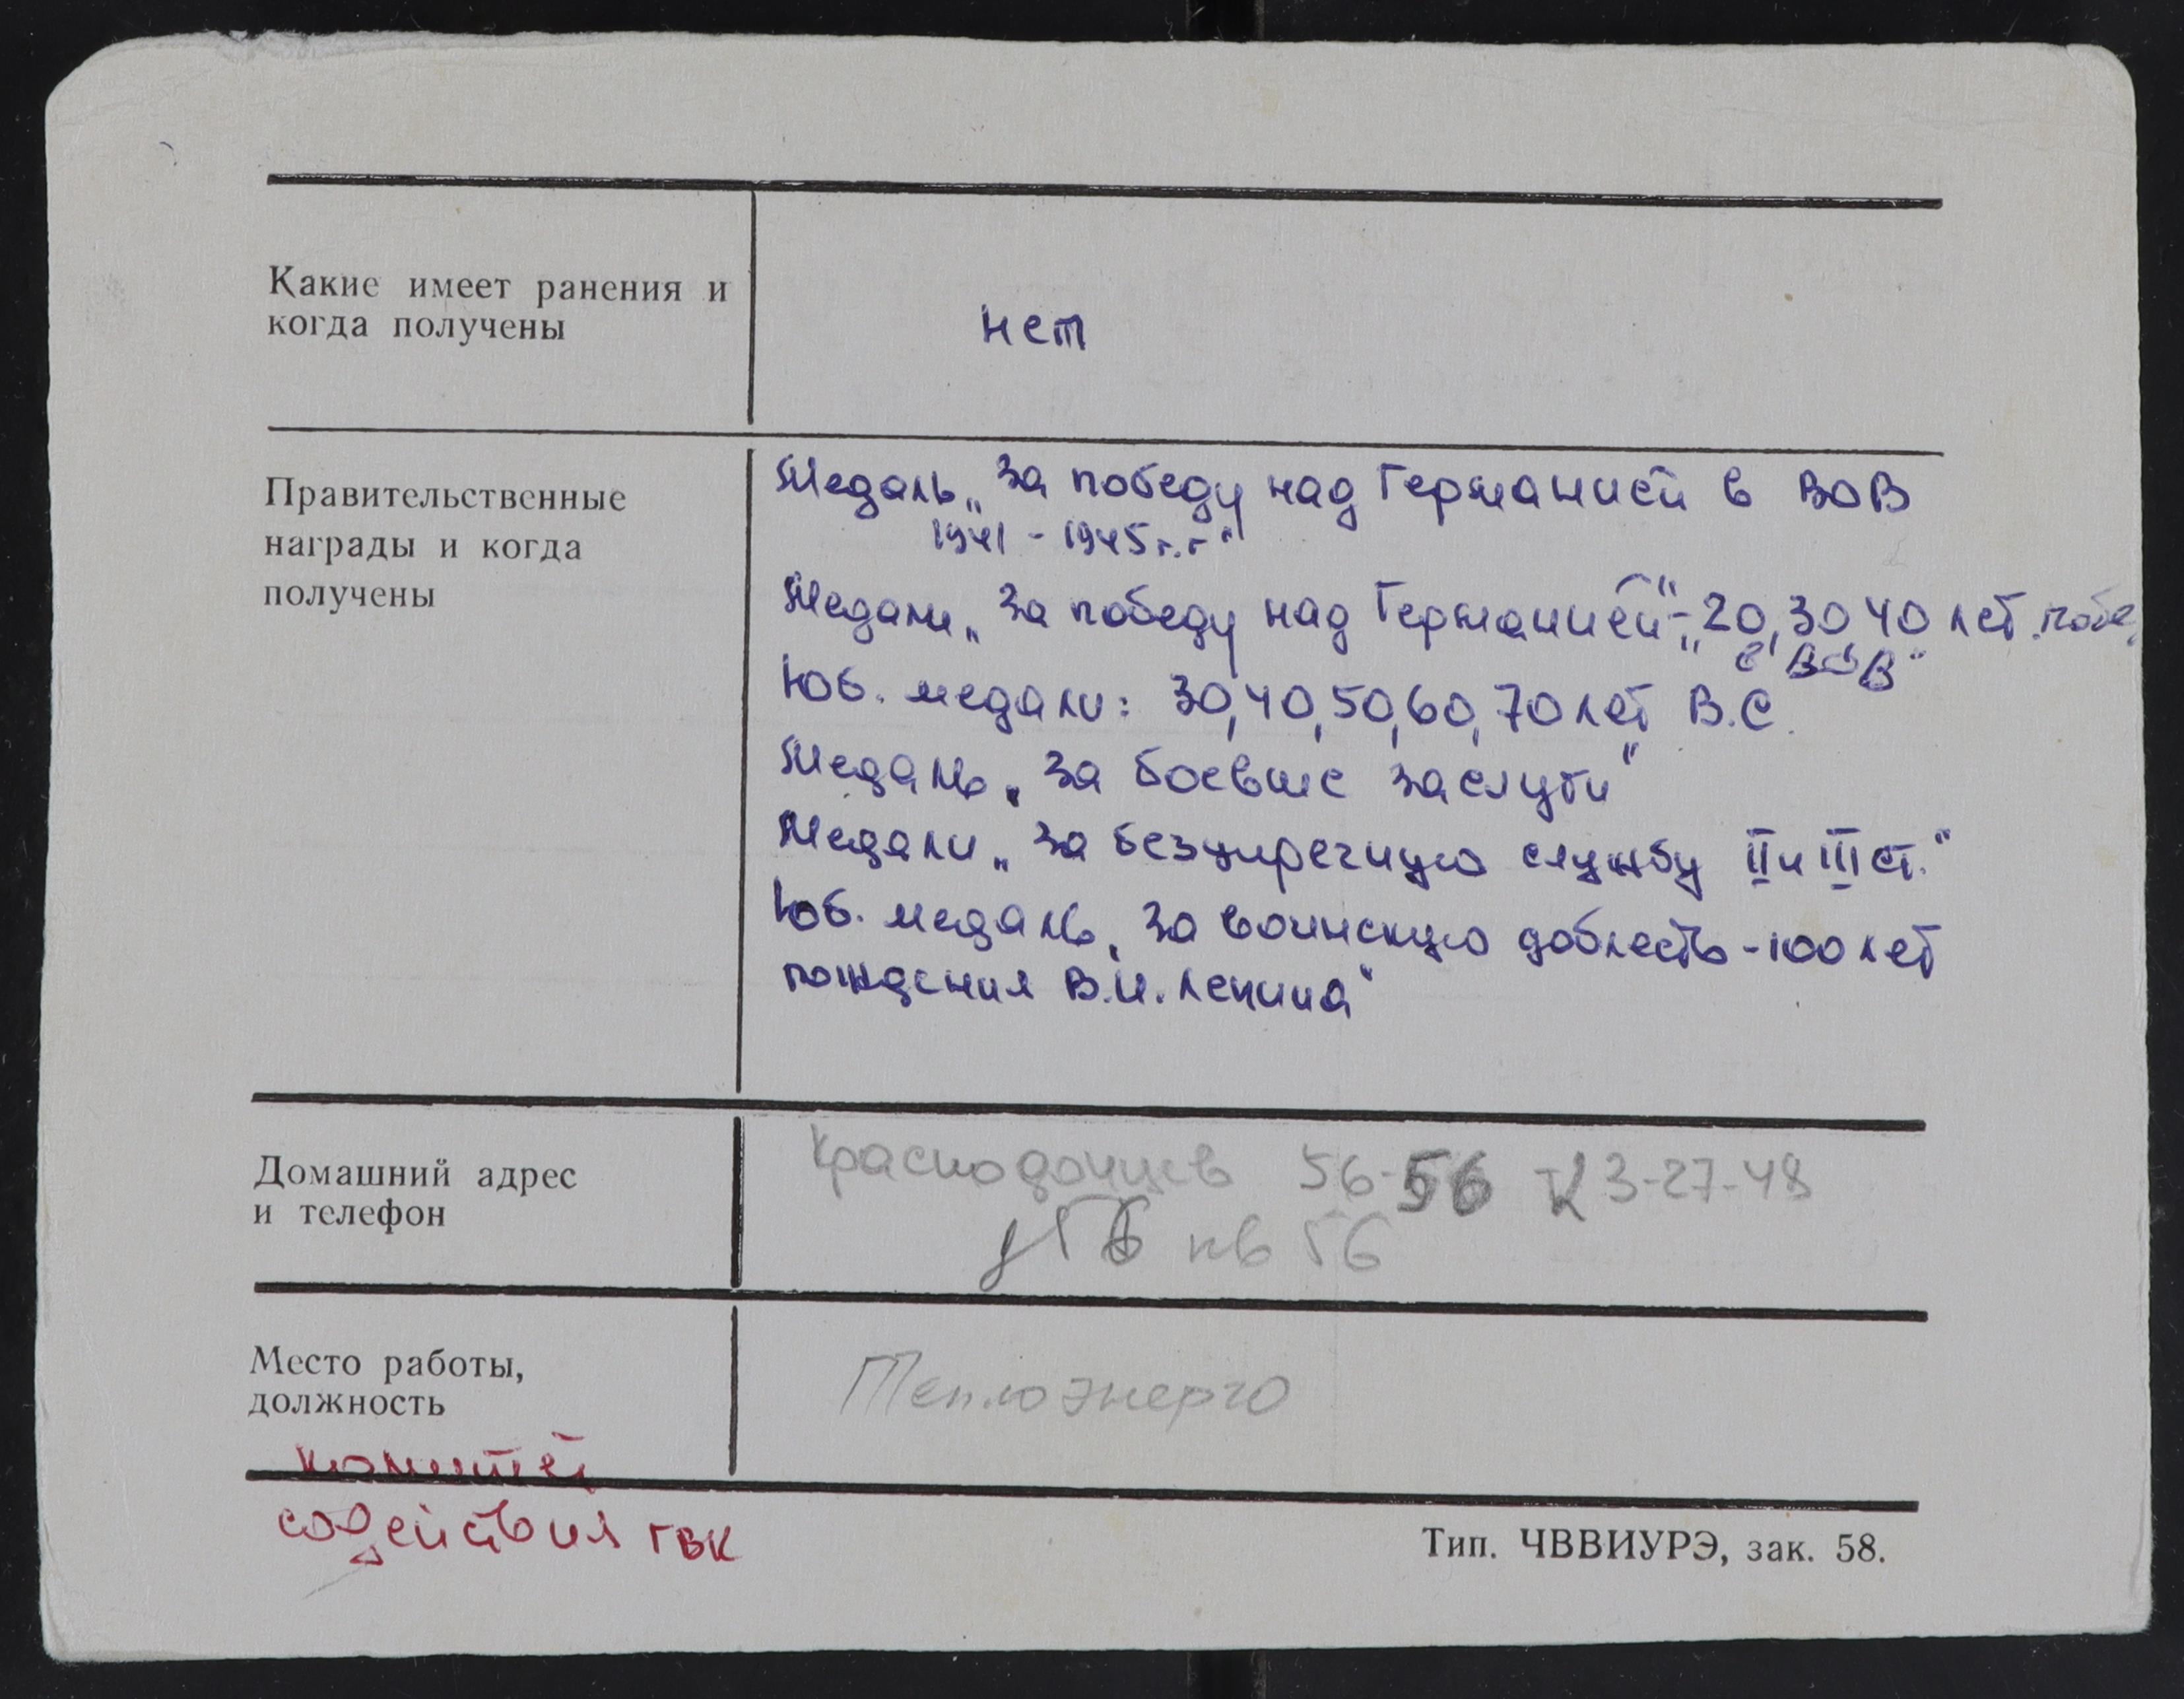 Какие имеет ранения и
когда получены
нет
Правительственные
награды и когда
получены
Медаль „За победу над Германией в ВОВ
1941 - 1945 г.г"
Медали „За победу над Германией"-„20, 30, 40 лет побе
в ВОВ"
Юб. медали: 30, 40, 50, 60, 70 лет В.С.
Медаль „За боевые заслуги"
Медали „За безупречную службу II и III ст."
Юб. медаль „За воинскую доблесть - 100 лет
рождения В.И. Ленина"
Домашний адрес
и телефон
Краснодонцев 56-56 3-27-48
кв 56
Место работы,
должность
Теплоэнерго
комитет
содействия ГВК
Тип. ЧВВИУРЭ, зак. 58.